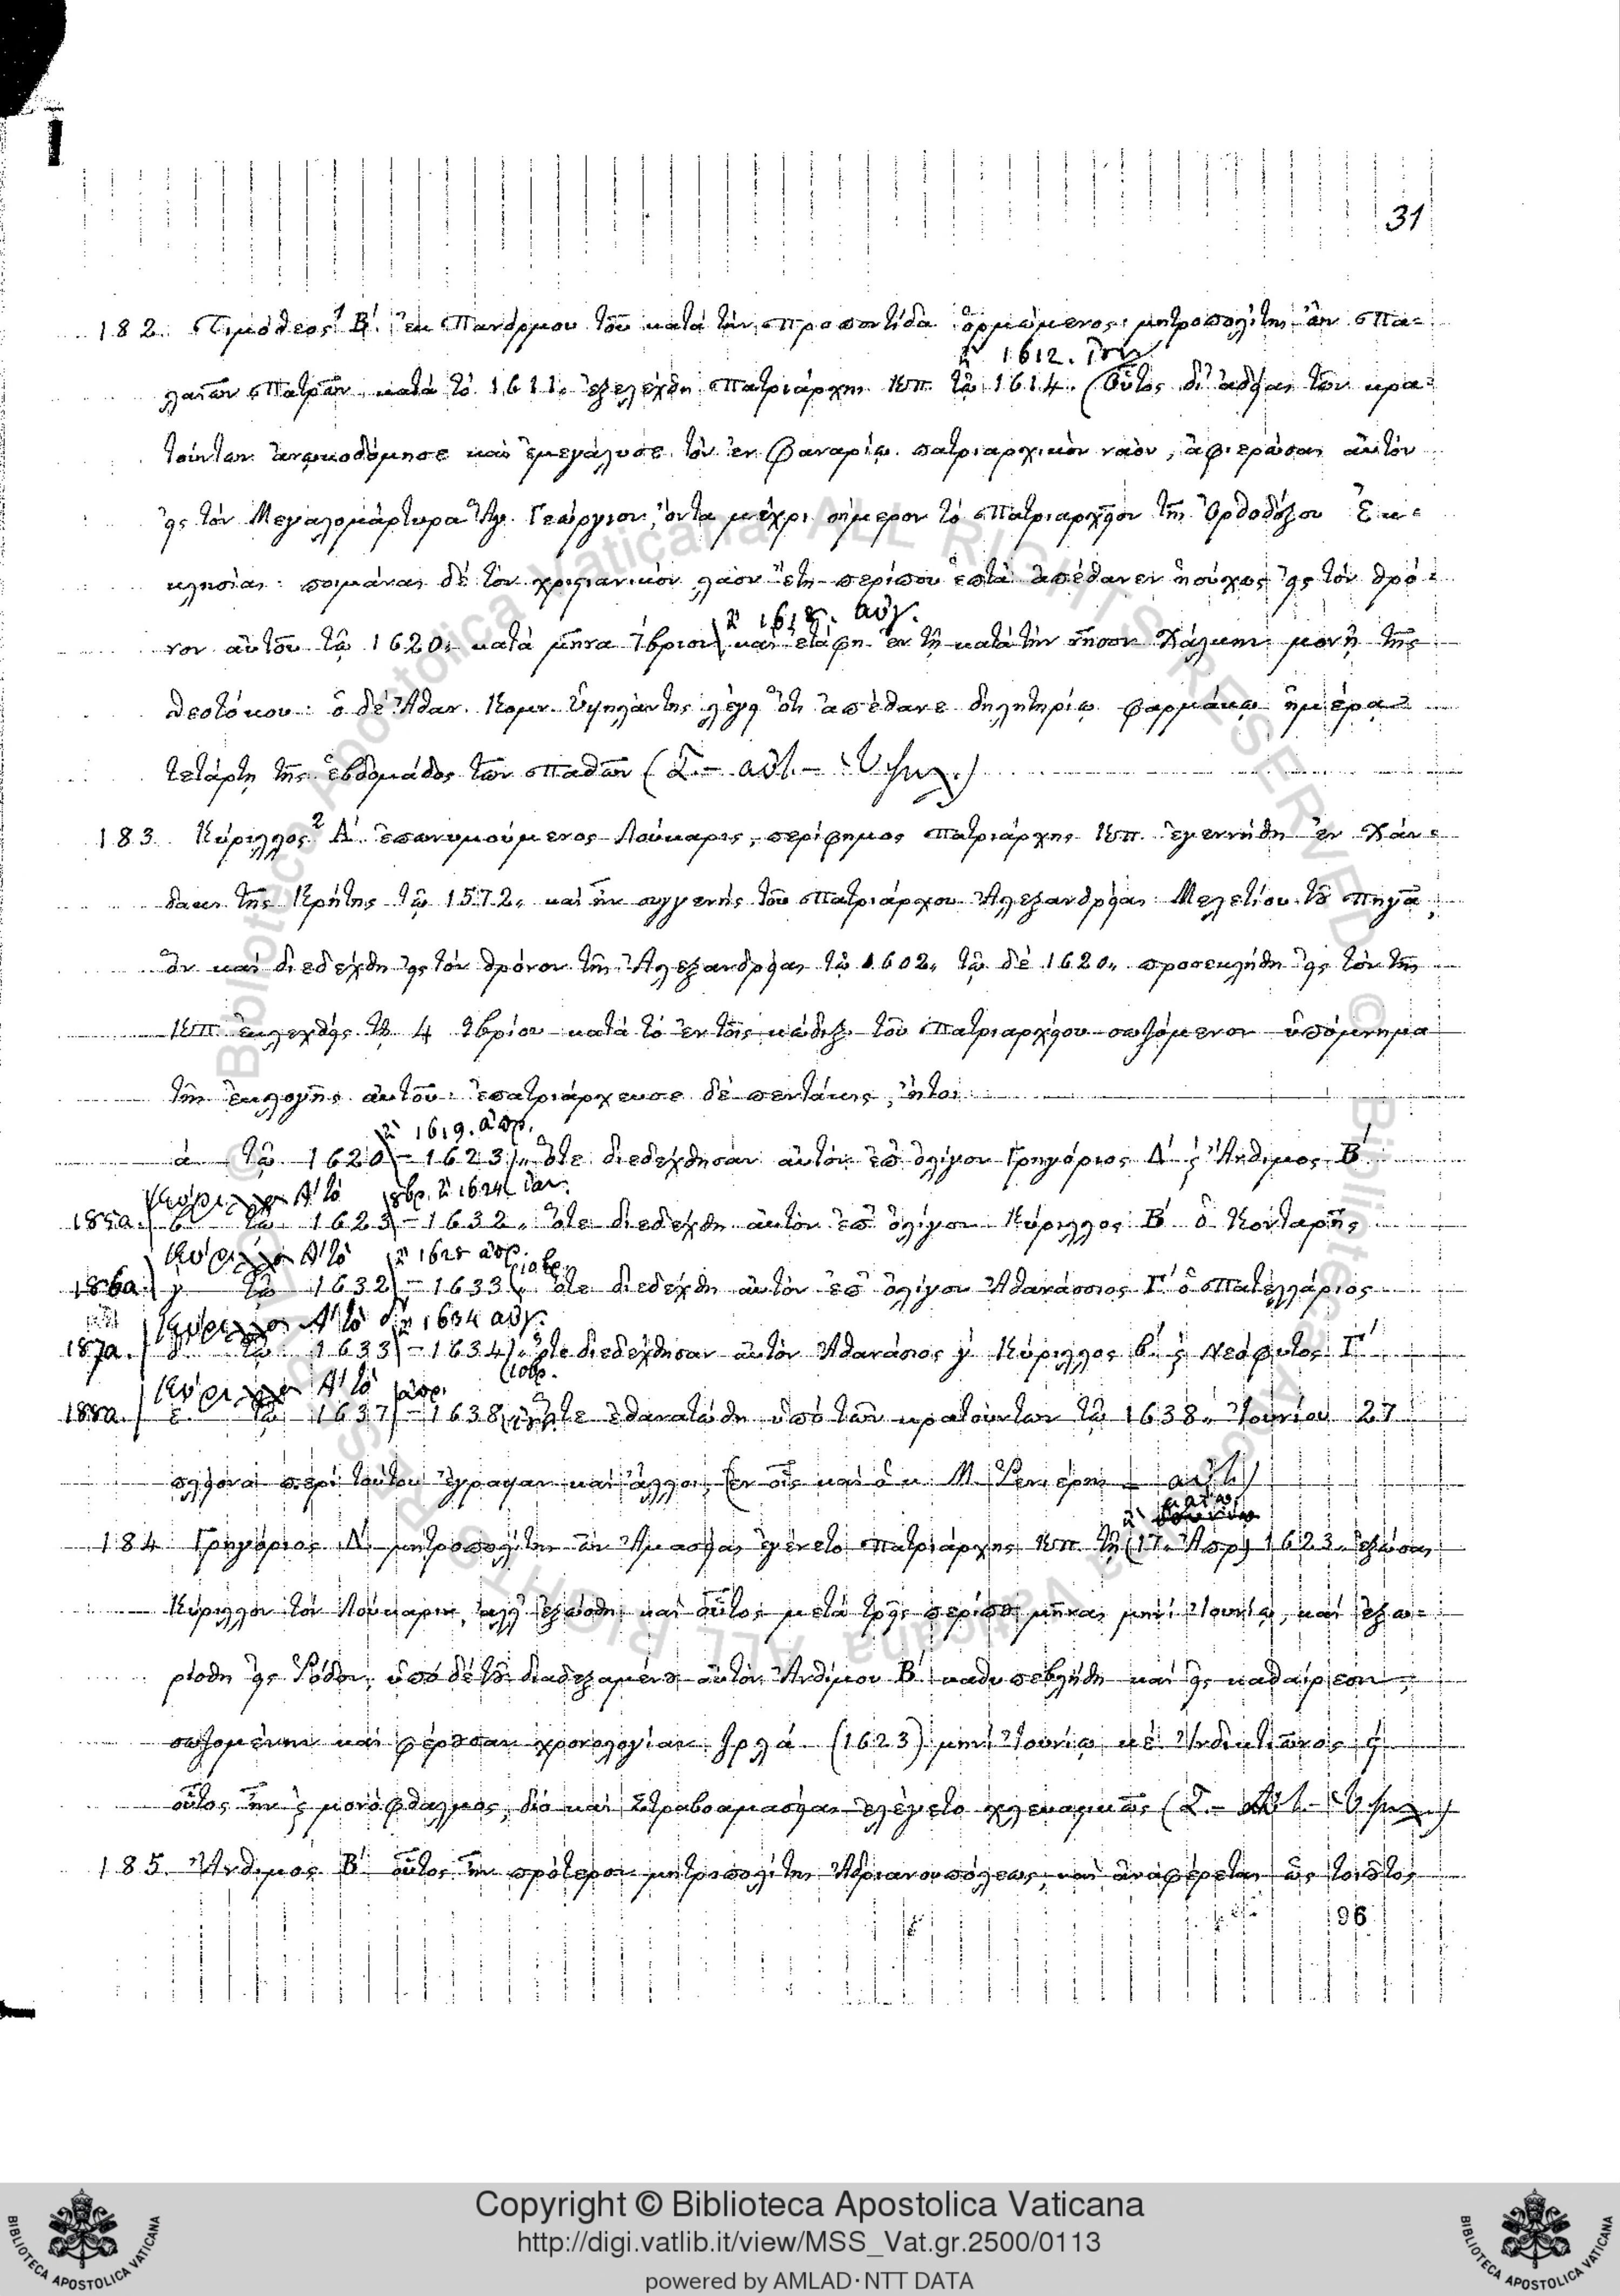 31
182. Τιμόθεος¹ Β΄. ἐκ Πανόρμου τοῦ κατά τήν Προποντίδα ὁρμώμενος, μητροπολίτης ὤν Πα-
ἢ 1612.
λαιῶν Πατρῶν κατά τό 1611. ἐξελέχθη Πατριάρχης Κπ. τῷ 1614. (Οὗτος δι' ἀδείας τῶν κρα-
τούντων ἀνῳκοδόμησε καί ἐμεγάλυσε τόν ἐν Φαναρίῳ πατριαρχικόν ναόν, ἀφιερώσας αὐτόν
εἰς τόν Μεγαλομάρτυρα Ἅγ. Γεώργιον, ὄντα μέχρι σήμερον τό Πατριαρχεῖον τῆς Ὀρθοδόξου Ἐκ-
κλησίας: ποιμάνας δέ τόν χριστιανικόν λαόν ἔτη περίπου ἑπτά ἀπέθανεν ἡσύχως εἰς τόν θρό-
ἢ 1618. αὐγ.
νον αὐτοῦ τῷ 1620. κατά μῆνα 7βριον καί ἐτάφη ἐν τῇ κατά τήν νῆσον Χάλκην μονῇ τῆς
Θεοτόκου: ὁ δέ Ἀθαν. Κομν. Ὑψηλάντης λέγει ὅτι ἀπέθανε δηλητηρίῳ φαρμάκῳ ἡμέρᾳ
τετάρτῃ τῆς ἑβδομάδος τῶν Παθῶν (Σ.– αὐτ.– Ὑψηλ.)
183. Κύριλλος² Α΄. ἐπονυμούμενος Λούκαρις, περίφημος Πατριάρχης Κπ. ἐγεννήθη ἐν Χάν-
δακι τῆς Κρήτης τῷ 1572. καί ἦν συγγενής τοῦ Πατριάρχου Ἀλεξανδρείας Μελετίου τοῦ Πηγᾶ,
ὅν καί διεδέχθη εἰς τόν θρόνον τῆς Ἀλεξανδρείας τῷ 1602. τῷ δέ 1620. προσεκλήθη εἰς τόν τῆς
Κπ. ἐκλεχθείς τῇ 4 7βρίου κατά τό ἐν τοῖς κώδιξι τοῦ Πατριαρχείου σωζόμενον ὑπόμνημα
τῆς ἐκλογῆς αὐτοῦ: ἐπατριάρχευσε δέ πεντάκις, ἤτοι
ἢ 1619. ἀπρ.
α΄ τῷ 1620 – 1623. ὅτε διεδέχθησαν αὐτόν ἐπ' ὀλίγον Γρηγόριος Δ΄ ϗ Ἄνθιμος Β΄
Κύριλλον Α΄ τό 8βρ. ἢ 1624 ἰαν.
185α. β΄ τῷ 1623 – 1632. ὅτε διεδέχθη αὐτόν ἐπ' ὀλίγον Κύριλλος Β΄ ὁ Κονταρῆς
Κύριλλον Α΄ τό ἢ 1625 ἀπρ. 10βρ.
186α. γ΄ τῷ 1632 – 1633. ὅτε διεδέχθη αὐτόν ἐπ' ὀλίγον Ἀθανάσιος Γ΄ ὁ Πατελλάριος
Κύριλλον Α΄ τό ἢ 1634 αὐγ.
187α. δ΄ τῷ 1633 – 1634. ὅτε διεδέχθησαν αὐτόν Ἀθανάσιος γ΄ Κύριλλος β΄ ϗ Νεόφυτος Γ΄
Κύριλλον Α΄ τό ἀπρ. 10βρ.
188α. ε΄ τῷ 1637 – 1638 ὅτε ἐθανατώθη ὑπό τῶν κρατούντων τῷ 1638. Ἰουνίου 27
πλείονα περί τούτου ἔγραψαν καί ἄλλοι, ἐν οἷς καί ὁ κ. Μ. Ρενιέρης – αὐτ.)
184 Γρηγόριος Δ΄. μητροπολίτης ὤν Ἀμασείας ἐγένετο Πατριάρχης Κπ. τῇ (17. Ἀπρ) 1623. ἐξώσας
Κύριλλον τόν Λούκαριν, ἀλλ' ἐξεώσθη καί οὗτος μετά τρεῖς περίπου μῆνας μηνί Ἰουνίῳ, καί ἐξω-
ρίσθη εἰς Ῥόδον, ὑπό δέ τοῦ διαδεξαμένου αὐτόν Ἀνθίμου Β΄ καθυπεβλήθη καί εἰς καθαίρεσιν,
σωζομένην καί φέρουσαν χρονολογίαν ζρλα΄ (1623) μηνί Ἰουνίῳ κε΄ Ἰνδικτιῶνος ϛ΄
οὗτος ἦν ϗ μονόφθαλμος, διό καί Στραβοαμασείας ἐλέγετο χλευαστικῶς (Σ.– Αὐτ.– Ὑψηλ.)
185. Ἄνθιμος Β΄ οὗτος ἦν πρότερον μητροπολίτης Ἀδριανουπόλεως, καί ἀναφέρεται ὡς τοιοῦτος
96
Copyright © Biblioteca Apostolica Vaticana
http://digi.vatlib.it/view/MSS_Vat.gr.2500/0113
powered by AMLAD·NTT DATA
BIBLIOTECA APOSTOLICA VATICANA
BIBLIOTECA APOSTOLICA VATICANA